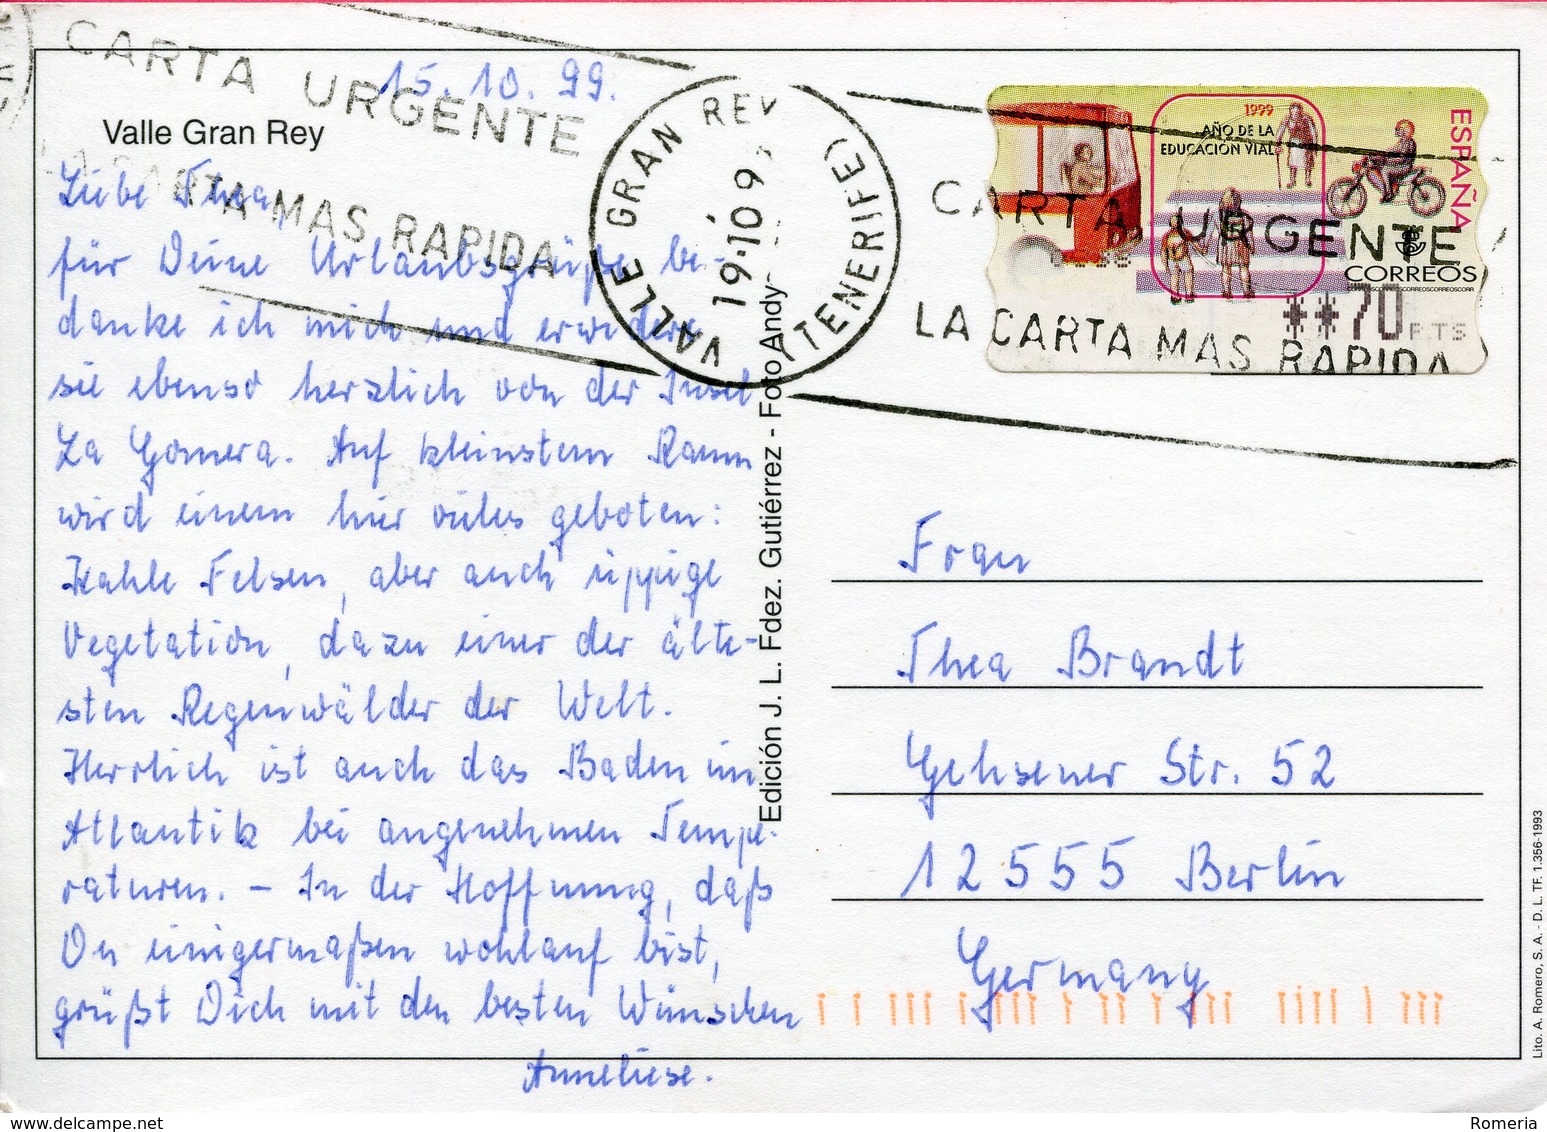 CARTA URGENTE
LA CARTA MAS RAPIDA
15.10.99.
Valle Gran Rey
Liebe Thea,
für Deine Urlaubsgrüße be-
danke ich mich und erwidere
sie ebenso herzlich von der Insel
La Gomera. Auf kleinstem Raum
wird einem hier vieles geboten:
Kahle Felsen, aber auch üppige
Vegetation, dazu einer der älte-
sten Regenwälder der Welt.
Herrlich ist auch das Baden im
Atlantik bei angenehmen Tempe-
raturen. – In der Hoffnung, daß
Du einigermaßen wohlauf bist,
grüßt Dich mit den besten Wünschen
Anneliese.
VALLE GRAN REY
19·10 9
(TENERIFE)
Edición J. L. Fdez. Gutiérrez - Foto Andy
1999
AÑO DE LA
EDUCACIÓN VIAL
ESPAÑA
CORREOS
**70 PTS
CARTA URGENTE
LA CARTA MAS RAPIDA
Frau
Thea Brandt
Gehsener Str. 52
12555 Berlin
Germany
Lito. A. Romero, S. A. - D. L. TF. 1.356-1993
www.delcampe.net
Romeria